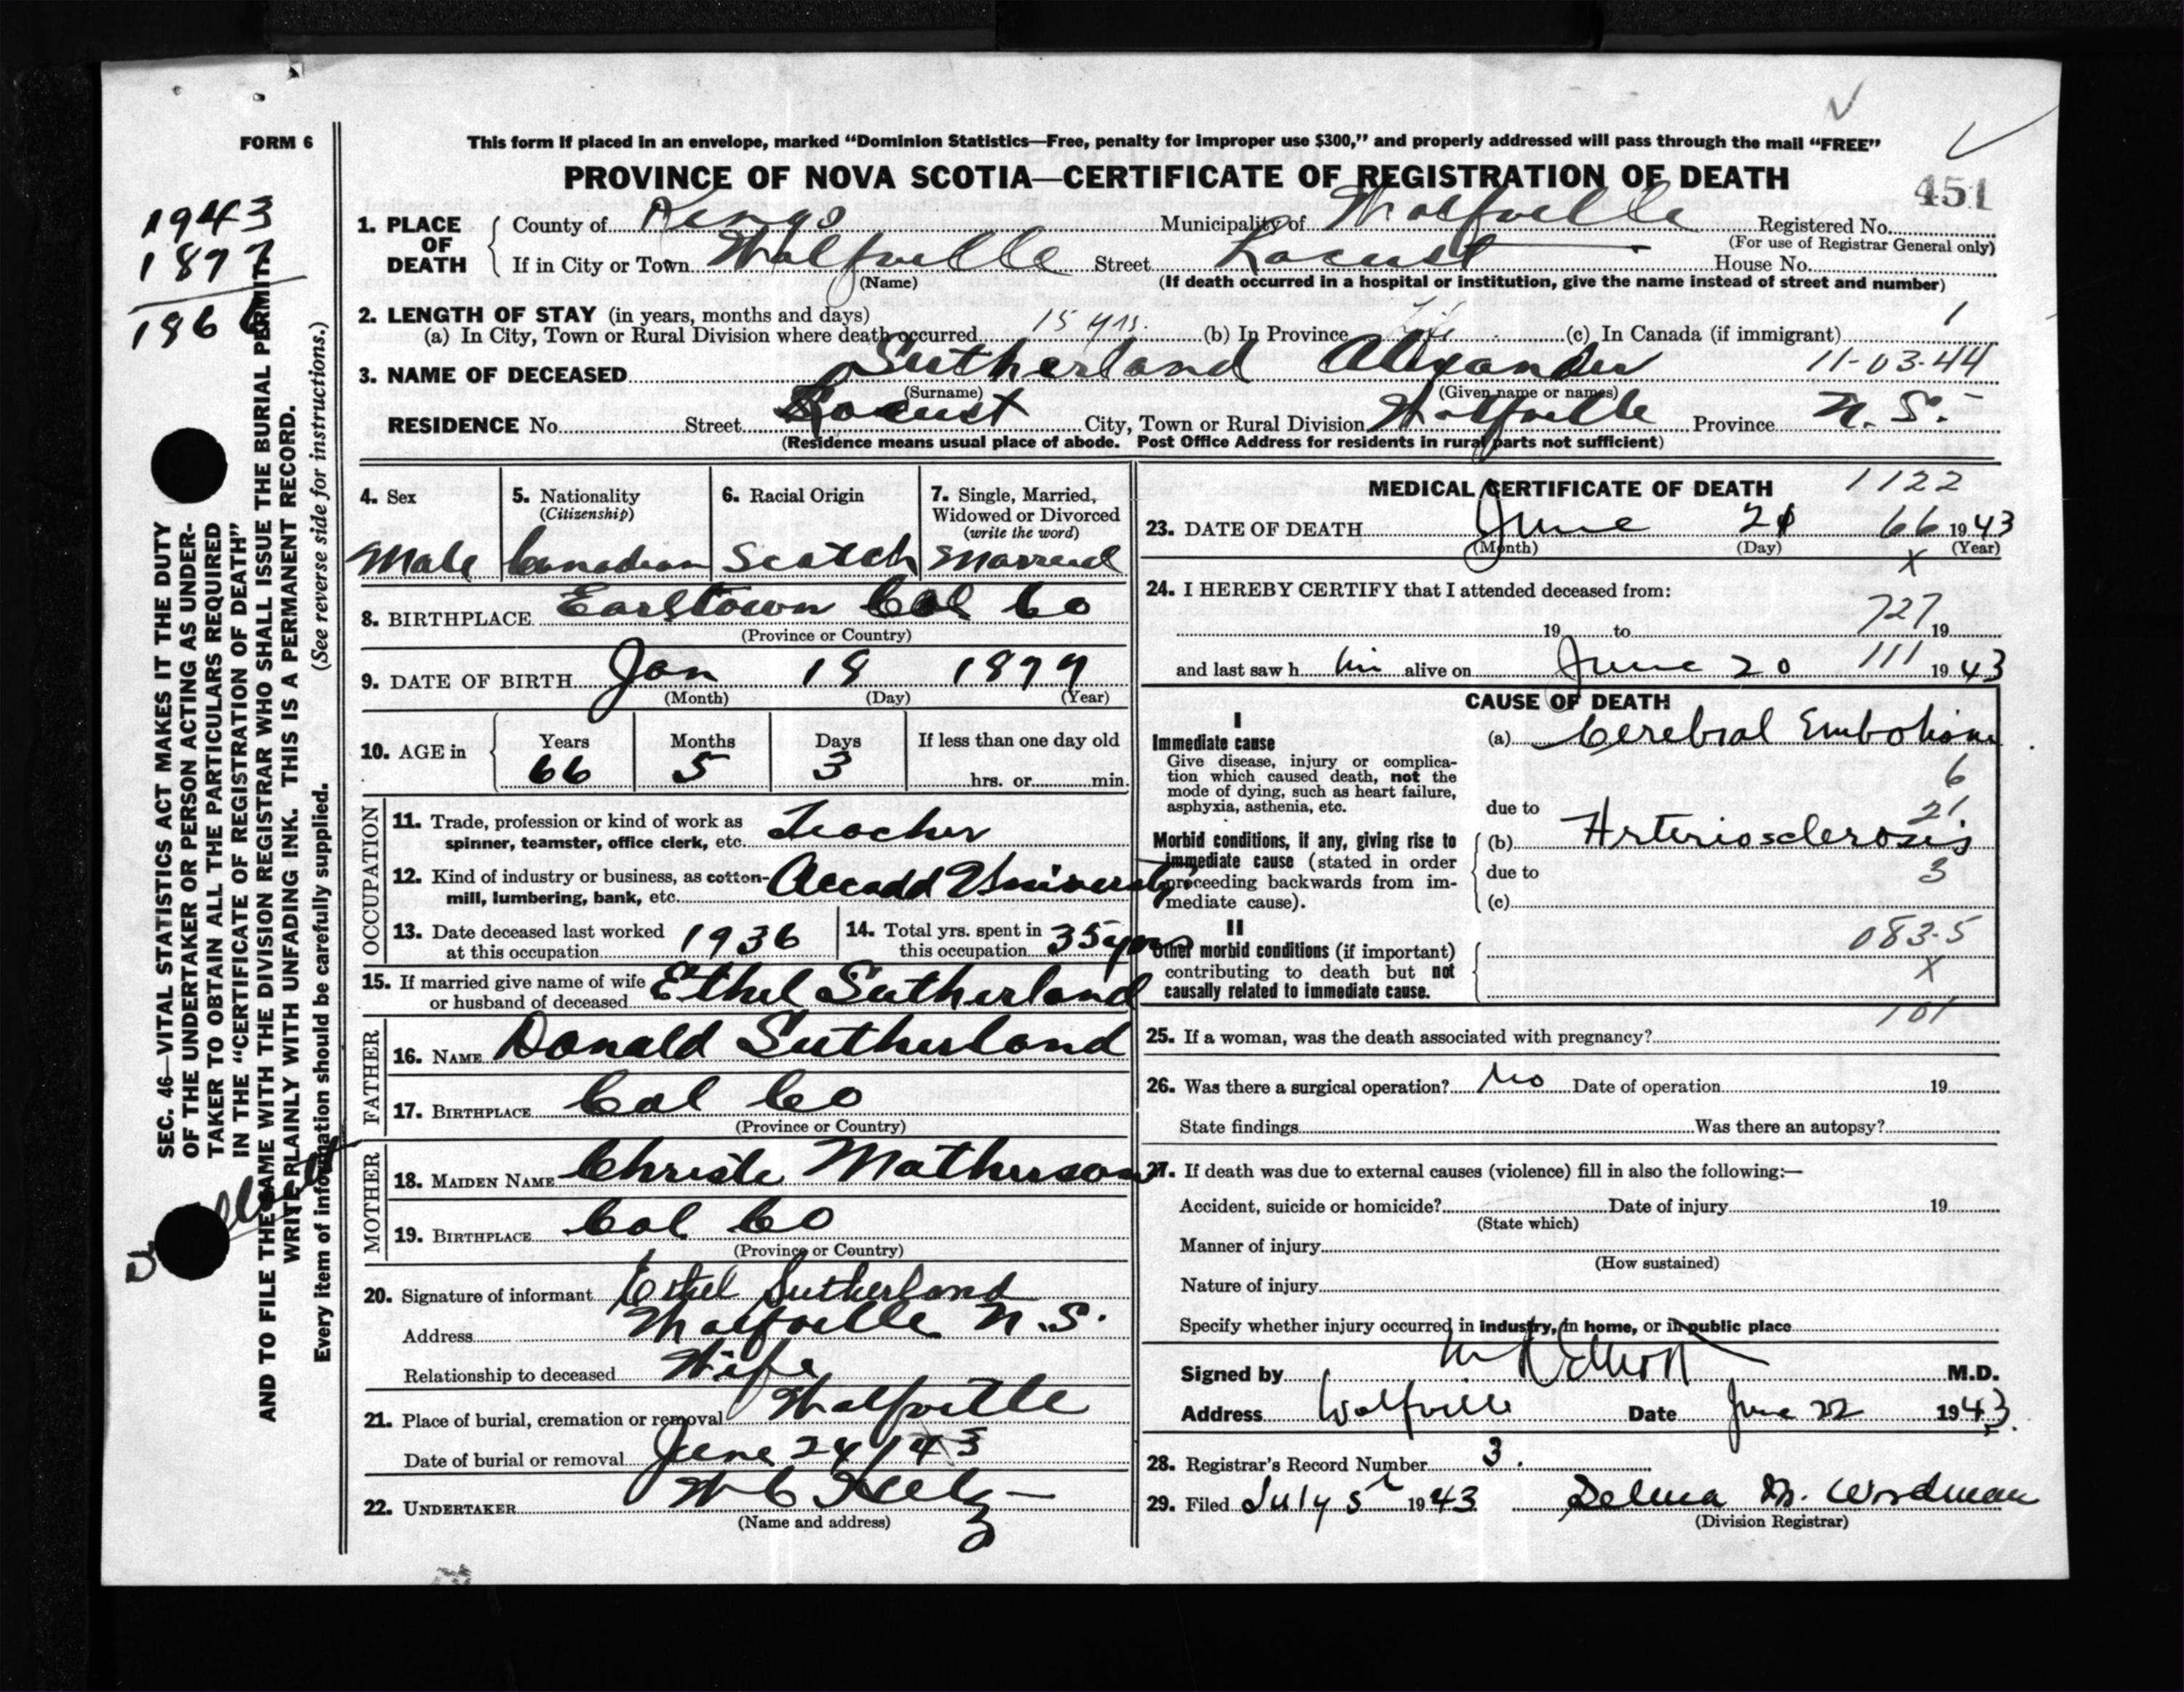 FORM 6
This form if placed in an envelope, marked “Dominion Statistics—Free, penalty for improper use $300,” and properly addressed will pass through the mail “FREE”
PROVINCE OF NOVA SCOTIA—CERTIFICATE OF REGISTRATION OF DEATH
451
1943
1877
1. PLACE OF DEATH County of Kings Municipality of Wolfville Registered No.
(For use of Registrar General only)
If in City or Town Wolfville Street Locust House No.
(Name) (If death occurred in a hospital or institution, give the name instead of street and number)
2. LENGTH OF STAY (in years, months and days)
(a) In City, Town or Rural Division where death occurred 15 yrs. (b) In Province Life (c) In Canada (if immigrant)
3. NAME OF DECEASED Sutherland Alexander 11-03-44
(Surname) (Given name or names)
RESIDENCE No. Street Locust City, Town or Rural Division Wolfville Province N.S.
(Residence means usual place of abode. Post Office Address for residents in rural parts not sufficient)
4. Sex 5. Nationality (Citizenship) 6. Racial Origin 7. Single, Married, Widowed or Divorced (write the word)
Male Canadian Scotch Married
8. BIRTHPLACE Earltown Col Co
(Province or Country)
9. DATE OF BIRTH Jan 18 1877
(Month) (Day) (Year)
10. AGE in Years Months Days If less than one day old
66 5 3 hrs. or min.
OCCUPATION
11. Trade, profession or kind of work as
spinner, teamster, office clerk, etc. Teacher
12. Kind of industry or business, as cotton-
mill, lumbering, bank, etc. Accadd University
13. Date deceased last worked at this occupation 1936 14. Total yrs. spent in this occupation 35 yrs
15. If married give name of wife
or husband of deceased Ethel Sutherland
FATHER
16. NAME Donald Sutherland
17. BIRTHPLACE Col Co
(Province or Country)
MOTHER
18. MAIDEN NAME Christe Matherson
19. BIRTHPLACE Col Co
(Province or Country)
20. Signature of informant Ethel Sutherland
Address Wolfville N.S.
Relationship to deceased Wife
21. Place of burial, cremation or removal Wolfville
Date of burial or removal June 24/43
22. UNDERTAKER
(Name and address)
MEDICAL CERTIFICATE OF DEATH 1122
23. DATE OF DEATH June 21 66 1943
(Month) (Day) (Year)
x
24. I HEREBY CERTIFY that I attended deceased from:
19 to 727 19
and last saw h im alive on June 20 111 1943
CAUSE OF DEATH
I
Immediate cause (a) Cerebral Embolism
Give disease, injury or complica-
tion which caused death, not the
mode of dying, such as heart failure,
asphyxia, asthenia, etc. due to
6
21
Morbid conditions, if any, giving rise to (b) Arteriosclerosis
immediate cause (stated in order
proceeding backwards from im- due to 3
mediate cause). (c)
II
083.5
Other morbid conditions (if important)
contributing to death but not x
causally related to immediate cause.
101
25. If a woman, was the death associated with pregnancy?
26. Was there a surgical operation? No Date of operation 19
State findings Was there an autopsy?
27. If death was due to external causes (violence) fill in also the following:—
Accident, suicide or homicide? Date of injury 19
(State which)
Manner of injury
(How sustained)
Nature of injury
Specify whether injury occurred in industry, in home, or in public place
Signed by M.D.
Address Wolfville Date June 22 1943.
28. Registrar's Record Number 3.
29. Filed July 5th 1943 Selma M. Wordman
(Division Registrar)
SEC. 46—VITAL STATISTICS ACT MAKES IT THE DUTY
OF THE UNDERTAKER OR PERSON ACTING AS UNDER-
TAKER TO OBTAIN ALL THE PARTICULARS REQUIRED
IN THE “CERTIFICATE OF REGISTRATION OF DEATH”
AND TO FILE THE SAME WITH THE DIVISION REGISTRAR WHO SHALL ISSUE THE BURIAL PERMIT.
WRITE PLAINLY WITH UNFADING INK. THIS IS A PERMANENT RECORD.
Every item of information should be carefully supplied. (See reverse side for instructions.)